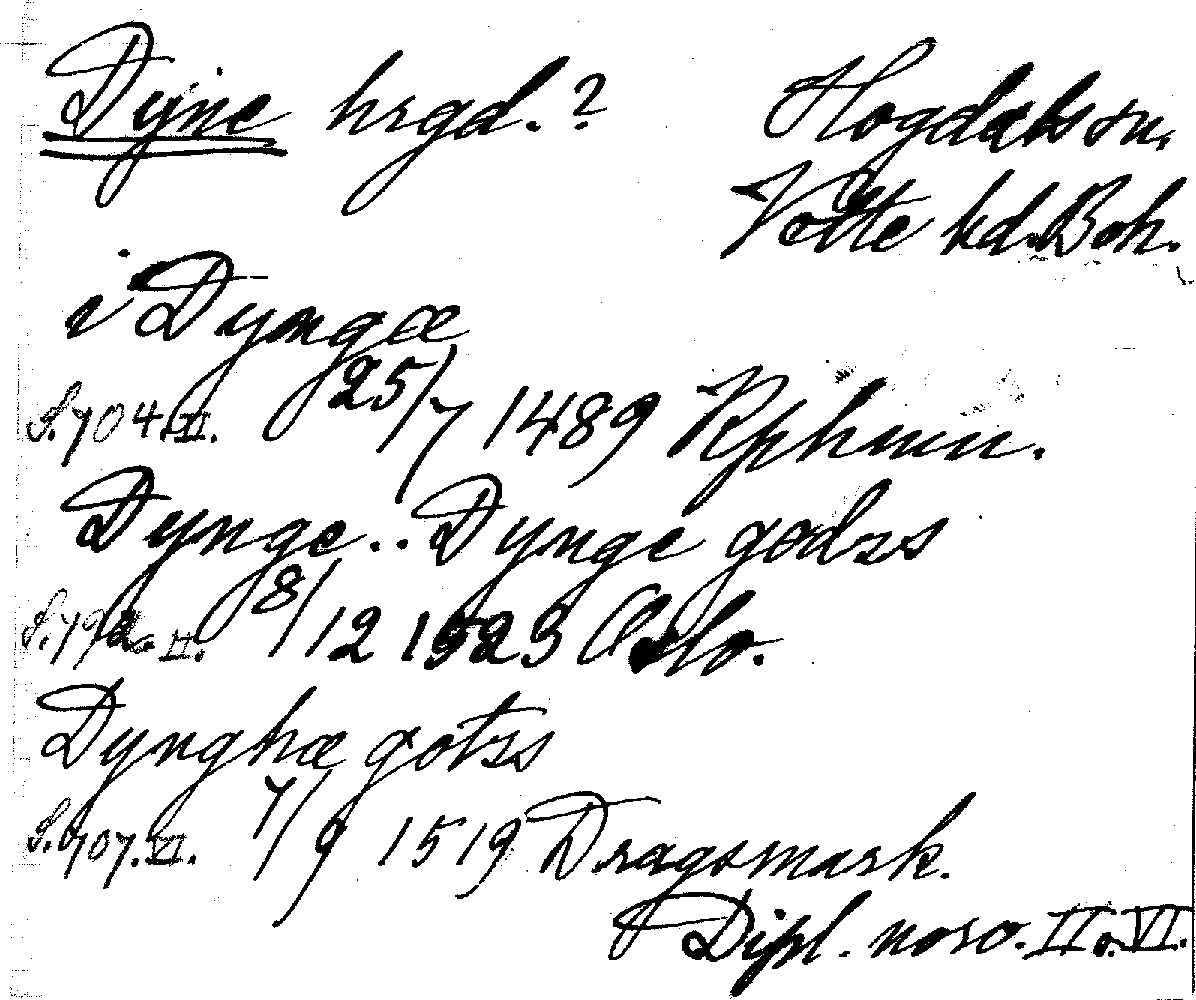 Dyne hrgd.? Hogdals sn,
Vätte hd. Boh.
i Dyngæ
S. 704. II. 25/7 1489 Kphmn.
Dynge .. Dynge godzs
S. 792. II. 8/12 1523 Oslo.
Dynghæ gotzs
S. 707. VI. 7/9 1519 Dragsmark.
Dipl. norv. II o. VI.